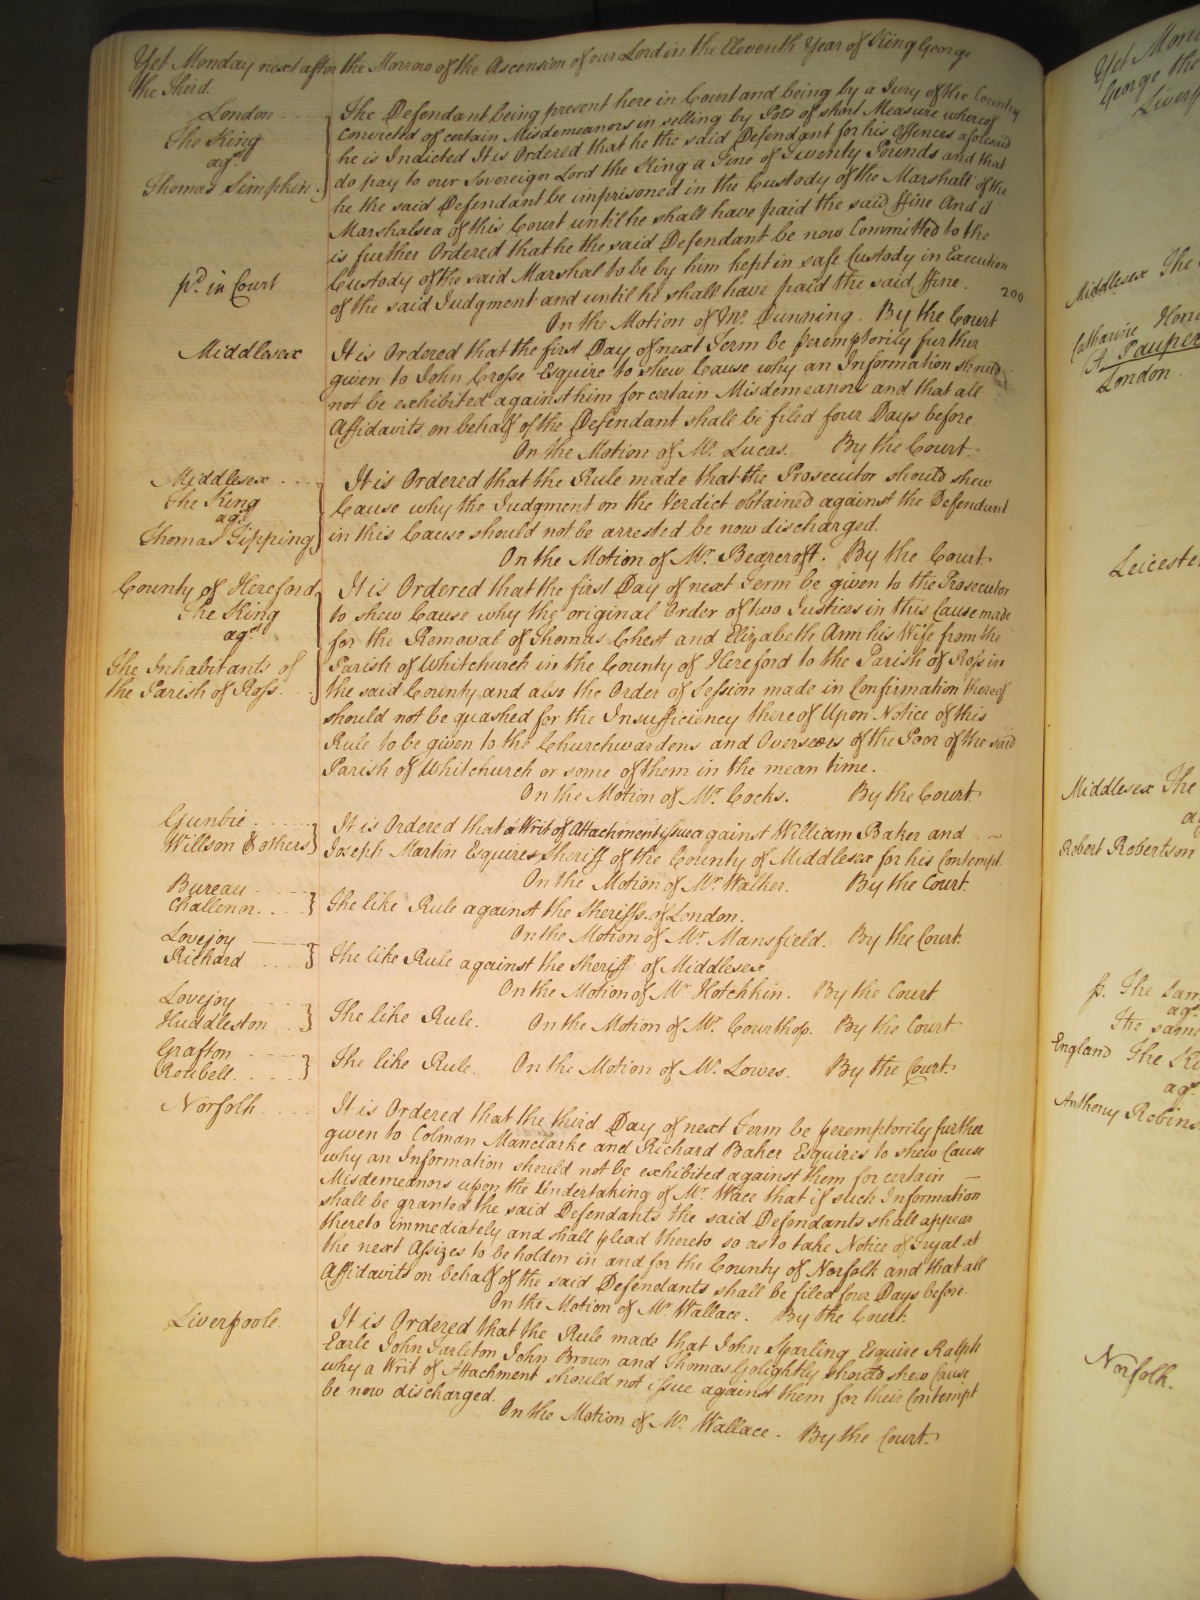 Yet Monday next after the Morrow of the Ascension of our Lord in the Eleventh Year of King George
the Third.
London
The King
agt
Thomas Simpkin.
pd in Court
The Defendant being present here in Court and being by a Jury of the Country
convicted of certain Misdemeanors in selling by Pots of short Measure whereof
he is Indicted It is Ordered that he the said Defendant for his Offences aforesaid
do pay to our Sovereign Lord the King a Fine of Twenty Pounds and that
he the said Defendant be imprisoned in the Custody of the Marshall of the
Marshalsea of this Court until he shall have paid the said ffine And it
is further Ordered that he the said Defendant be now Committed to the
Custody of the said Marshal to be by him kept in safe Custody in Execution
of the said Judgment and until he shall have paid the said ffine. 200
On the Motion of Mr. Dunning. By the Court
Middlesex
It is Ordered that the first Day of next Term be peremptorily further
given to John Crosse Esquire to shew Cause why an Information should
not be exhibited against him for certain Misdemeanors and that all
Affidavits on behalf of the Defendant shall be filed four Days before.
On the Motion of Mr. Lucas. By the Court.
Middlesex
The King
agt
Thomas Tipping
It is Ordered that the Rule made that the Prosecutor should shew
Cause why the Judgment on the Verdict obtained against the Defendant
in this Cause should not be arrested be now discharged.
On the Motion of Mr. Bearcroft. By the Court
County of Hereford
The King
agt
The Inhabitants of
the Parish of Ross.
It is Ordered that the first Day of next Term be given to the Prosecutor
to shew Cause why the original Order of two Justices in this Cause made
for the Removal of Thomas Chest and Elizabeth Ann his Wife from the
Parish of Whitchurch in the County of Hereford to the Parish of Ross in
the said County and also the Order of Session made in Confirmation thereof
should not be quashed for the Insufficiency thereof Upon Notice of this
Rule to be given to the Churchwardens and Overseers of the Poor of the said
Parish of Whitchurch or some of them in the mean time.
On the Motion of Mr. Cocks. By the Court
Gunbie
Willson & others
It is Ordered that a Writ of Attachment issue against William Baker and
Joseph Martin Esquires Sheriff of the County of Middlesex for his Contempt.
On the Motion of Mr. Walker. By the Court
Bureau
Challenor.
The like Rule against the Sheriffs of London.
On the Motion of Mr. Mansfield. By the Court.
Lovejoy
Richard
The like Rule against the Sheriff of Middlesex
On the Motion of Mr. Hotchkin. By the Court
Lovejoy
Huddleston
The like Rule. On the Motion of Mr. Courthop. By the Court
Grafton
Roubell.
The like Rule. On the Motion of Mr. Lowes. By the Court.
Norfolk
It is Ordered that the third Day of next Term be peremptorily further
given to Colman Manclarke and Richard Baker Esquires to shew Cause
why an Information should not be exhibited against them for certain
Misdemeanors upon the Undertaking of Mr. Wace that if such Information
shall be granted the said Defendants the said Defendants shall appear
thereto immediately and shall plead thereto so as to take Notice of Tryal at
the next Assizes to be holden in and for the County of Norfolk and that all
Affidavits on behalf of the said Defendants shall be filed four Days before.
On the Motion of Mr. Wallace. By the Court.
Liverpoole
It is Ordered that the Rule made that John Sparling Esquire Ralph
Earle John Tarleton John Brown and Thomas Golightly should shew Cause
why a Writ of Attachment should not issue against them for their Contempt
be now discharged.
On the Motion of Mr. Wallace. By the Court.
Yet Mon
George the
Liverp
Middlesex The
Catharine
A Pauper
London
Leicester
Middlesex The
Robert Robertson
p. The Sam
agt
The same
England The Ki
agt
Anthony Robins
Norfolk.